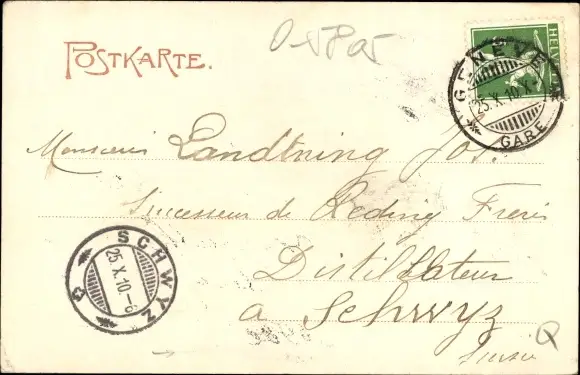 POSTKARTE.
HELVETIA
GENÈVE
25.X.10.X-
GARE
Monsieur Landtning Jos.
Successeur de Reding Frères
Distillateur
a Schwyz
Suisse
SCHWYZ
25.X.10.-8